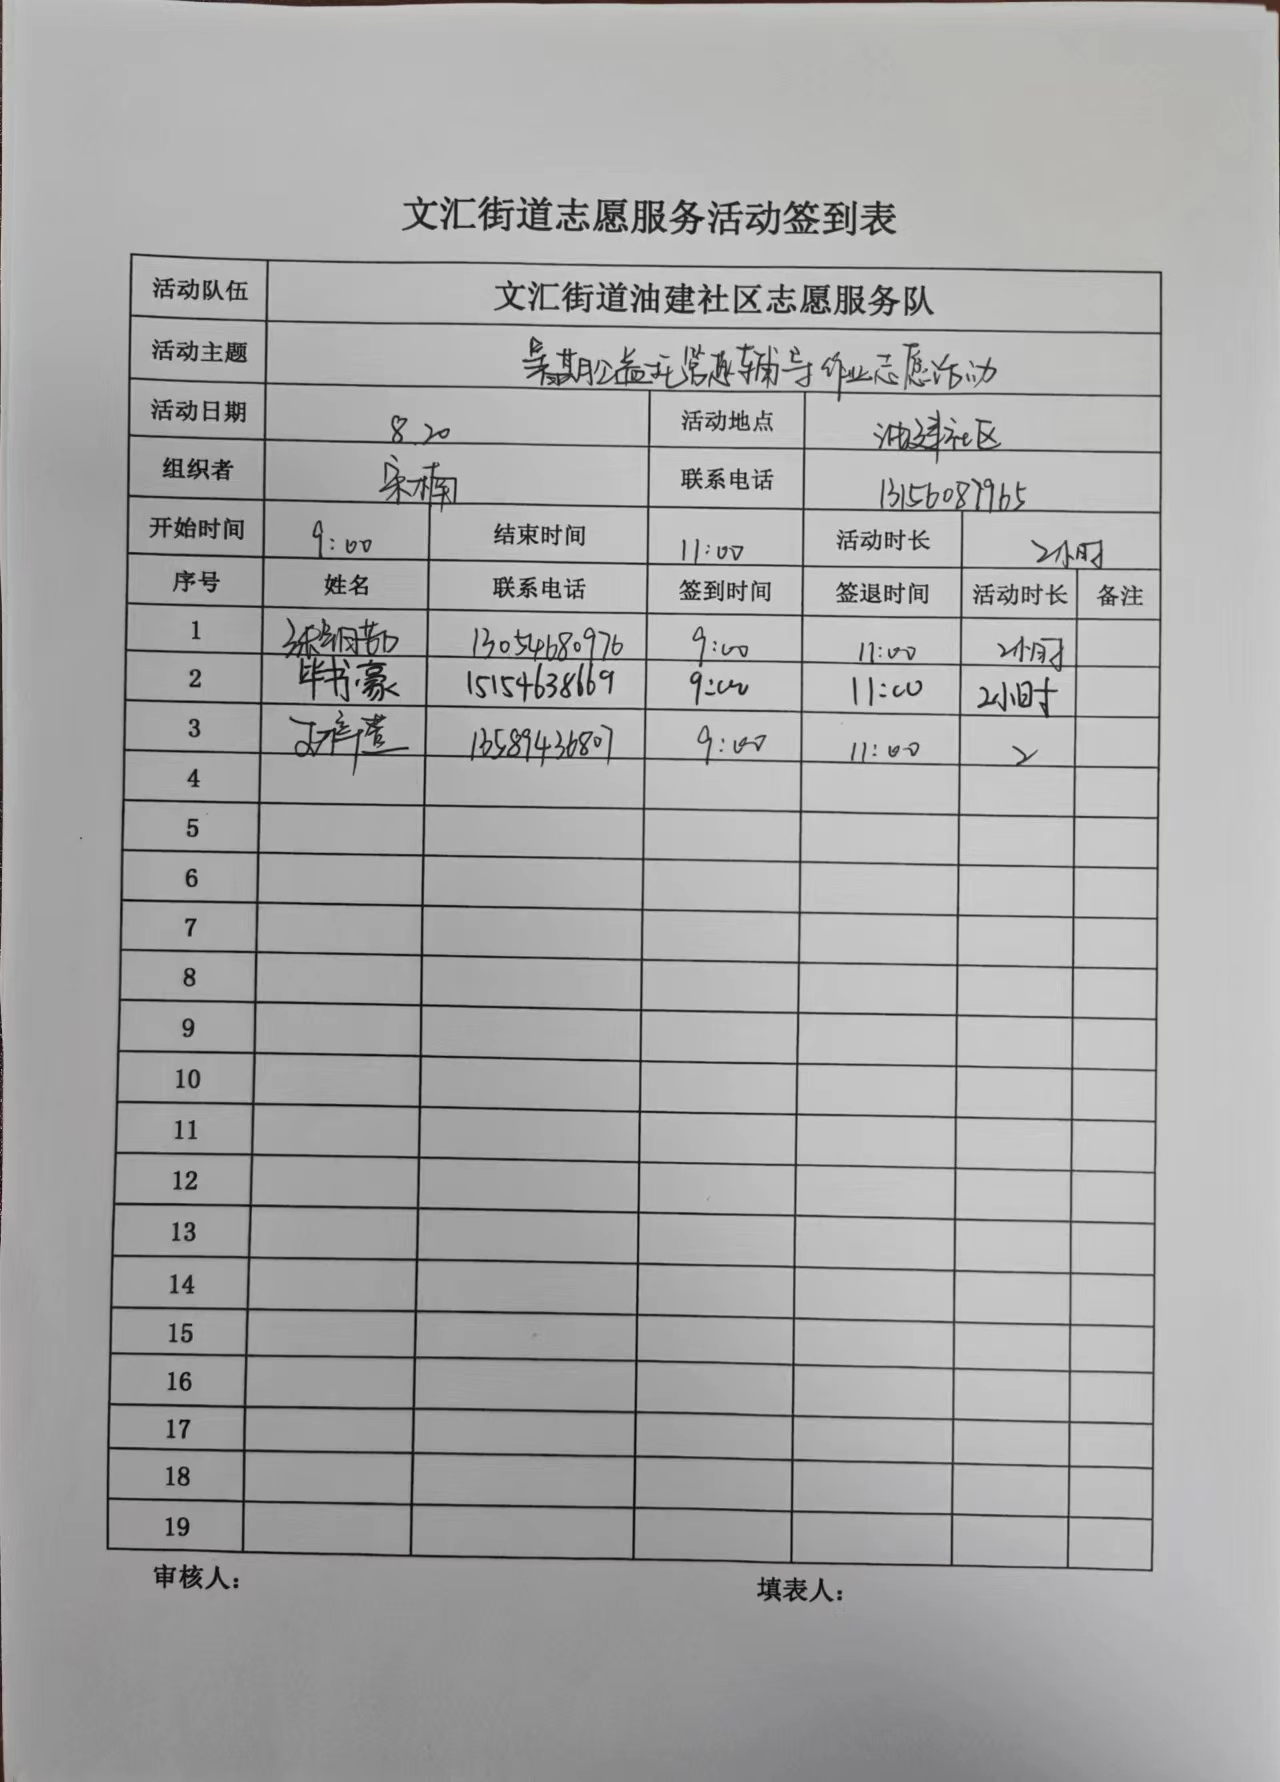 文汇街道志愿服务活动签到表
活动队伍 文汇街道油建社区志愿服务队
活动主题 暑期公益托管 辅导作业志愿活动
活动日期 8.20 活动地点 油建社区
组织者 宋楠 联系电话 13156087965
开始时间 9:00 结束时间 11:00 活动时长 2小时
序号 姓名 联系电话 签到时间 签退时间 活动时长 备注
1 13054680976 9:00 11:00 2小时
2 毕书豪 15154638669 9:00 11:00 2小时
3 13589436807 9:00 11:00 2
4
5
6
7
8
9
10
11
12
13
14
15
16
17
18
19
审核人： 填表人：